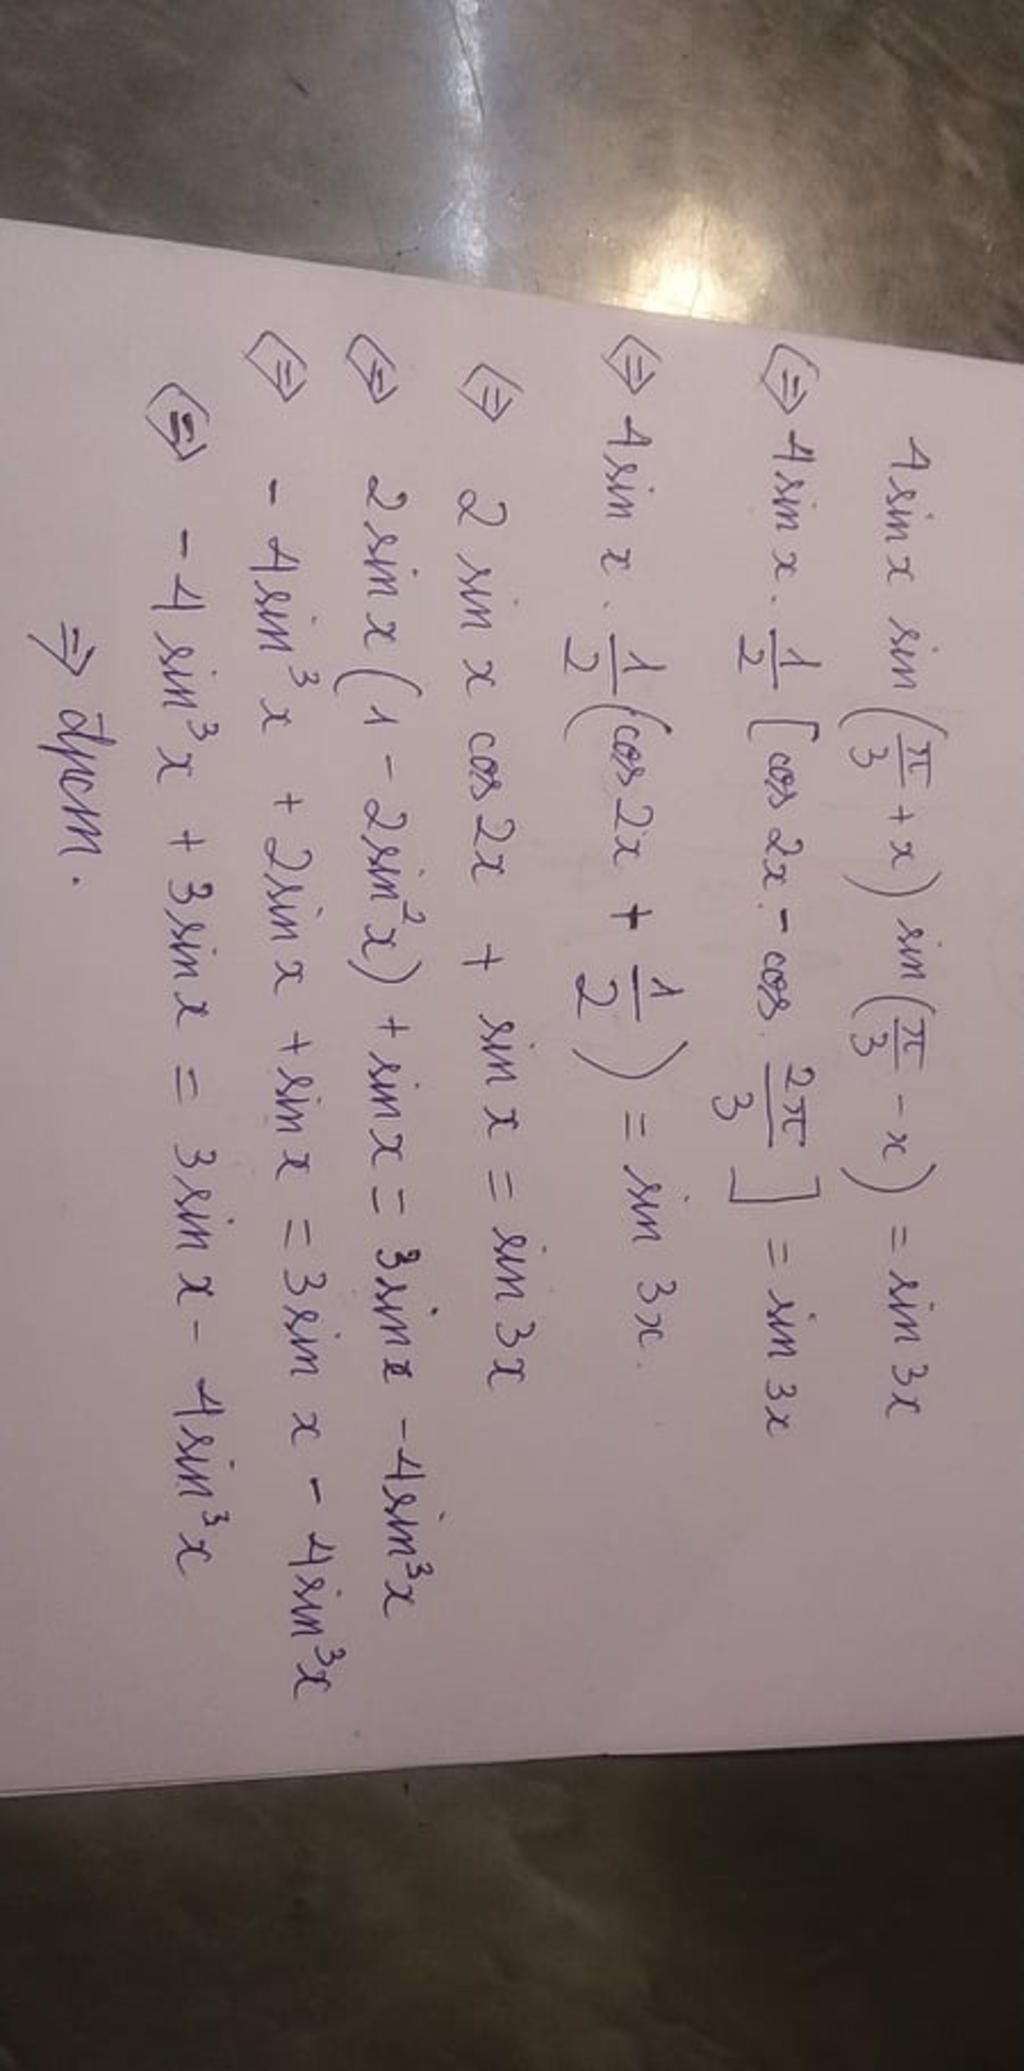 4sin x sin (π/3 + x) sin (π/3 - x) = sin 3x
⇔ 4sin x . 1/2 [cos 2x - cos 2π/3] = sin 3x
⇔ 4sin x . 1/2 (cos 2x + 1/2) = sin 3x.
⇔ 2 sin x cos 2x + sin x = sin 3x
⇔ 2 sin x (1 - 2sin²x) + sin x = 3sin x - 4sin³x
⇔ - 4sin³x + 2sin x + sin x = 3sin x - 4sin³x
⇔ - 4 sin³x + 3sin x = 3sin x - 4sin³x
⇒ đpcm.